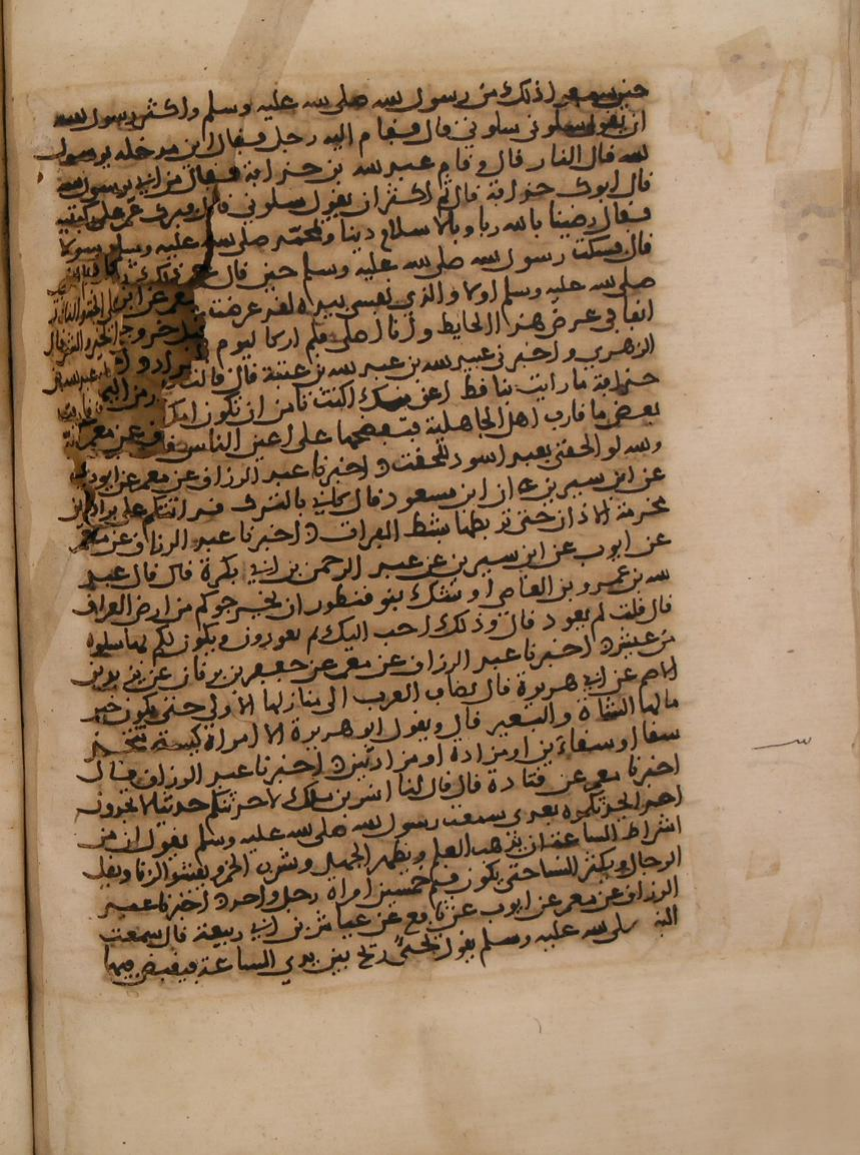 حين سمعوا ذلك من رسول الله صلى الله عليه وسلم واكثر رسول الله
ان يقول سلوني سلوني قال فقام اليه رجل فقال اين مدخله يرسول
الله قال النار قال وقام عبد الله بن حذافة فقال من ابي يرسول الله
قال ابوك حذافة قال ثم اكثر ان يقول سلوني قال فبرك عمر على ركبتيه
فقال رضينا بالله ربا وبالاسلام دينا وبمحمد صلى الله عليه وسلم رسولا
قال فسكت رسول الله صلى الله عليه وسلم حين قال عمر ذلك
صلى الله عليه وسلم اولا والذي نفسي بيده لقد عرضت
انفا في عرض هذا الحايط وانا اصلي فلم ار كاليوم
الزهري واخبرني عبيد الله بن عبد الله بن عتبة قال قالت
حذافة ما رايت بنا قط اعق منك اكنت تامن ان تكون امك
بعض ما قارف اهل الجاهلية فتفضحها على اعين الناس
والله لو الحقني بعبد اسود للحقت اخبرنا عبد الرزاق عن معمر عن ايوب
عن ابن سيرين ان ابن مسعود قال كاني بالترك قد اتتكم على براذين
مخرمة الاذان حتى تربطها بشط الفرات اخبرنا عبد الرزاق عن معمر
عن ايوب عن ابن سيرين عن عبد الرحمن بن ابي بكرة قال قال عبد
الله بن عمرو بن العاصي اوشك بنو قنطورا ان يخرجوكم من ارض العراق
قال قلت ثم نعود قال وذلك احب اليك ثم تعودون ويكون لكم بها سلوة
من عيش اخبرنا عبد الرزاق عن معمر عن جعفر بن برقان عن يزيد بن
الاصم عن ابي هريرة قال تضاف العرب الى منازلها الاولى حتى يكون خير
مالها الشاة والبعير قال ويقول ابو هريرة الا امراة كيسة تتخذ
سقا او سقاءين او مزادة او مزادتين اخبرنا عبد الرزاق قال
اخبرنا معمر عن قتادة قال قال لنا انس بن ملك لاحدثنكم حديثا لا تجدون
احدا يحدثكموه بعدي سمعت رسول الله صلى الله عليه وسلم يقول ان من
اشراط الساعة ان يذهب العلم ويظهر الجهل ويشرب الخمر ويفشو الزنا ويقل
الرجال ويكثر النسا حتى يكون قيم خمسين امراة رجل واحد اخبرنا عبد
الرزاق عن معمر عن ايوب عن نافع عن عياش بن ابي ربيعة قال سمعت
النبي صلى الله عليه وسلم يقول تجي ريح بين يدي الساعة فيقبض فيها